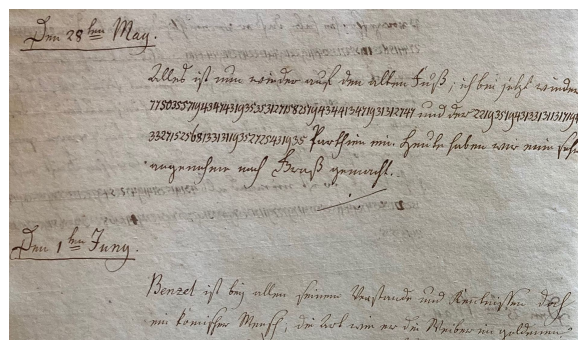 Den 28ten May.
Alles ist nun wieder auf den alten Fuß, ich bin jetzt wieder
775035579434743193535312715825794344134719313127 47 und der 2219351943133131131719
332715256813331193527254 31935 Parthien ein. Heute haben wir eine sehr
angenehme nach Graß gemacht.
Den 1ten Juny.
Benzel ist bey allen seinem Verstande und Kentnissen doch
ein komischer Mensch, die Art wie er die Weiber im goldenen